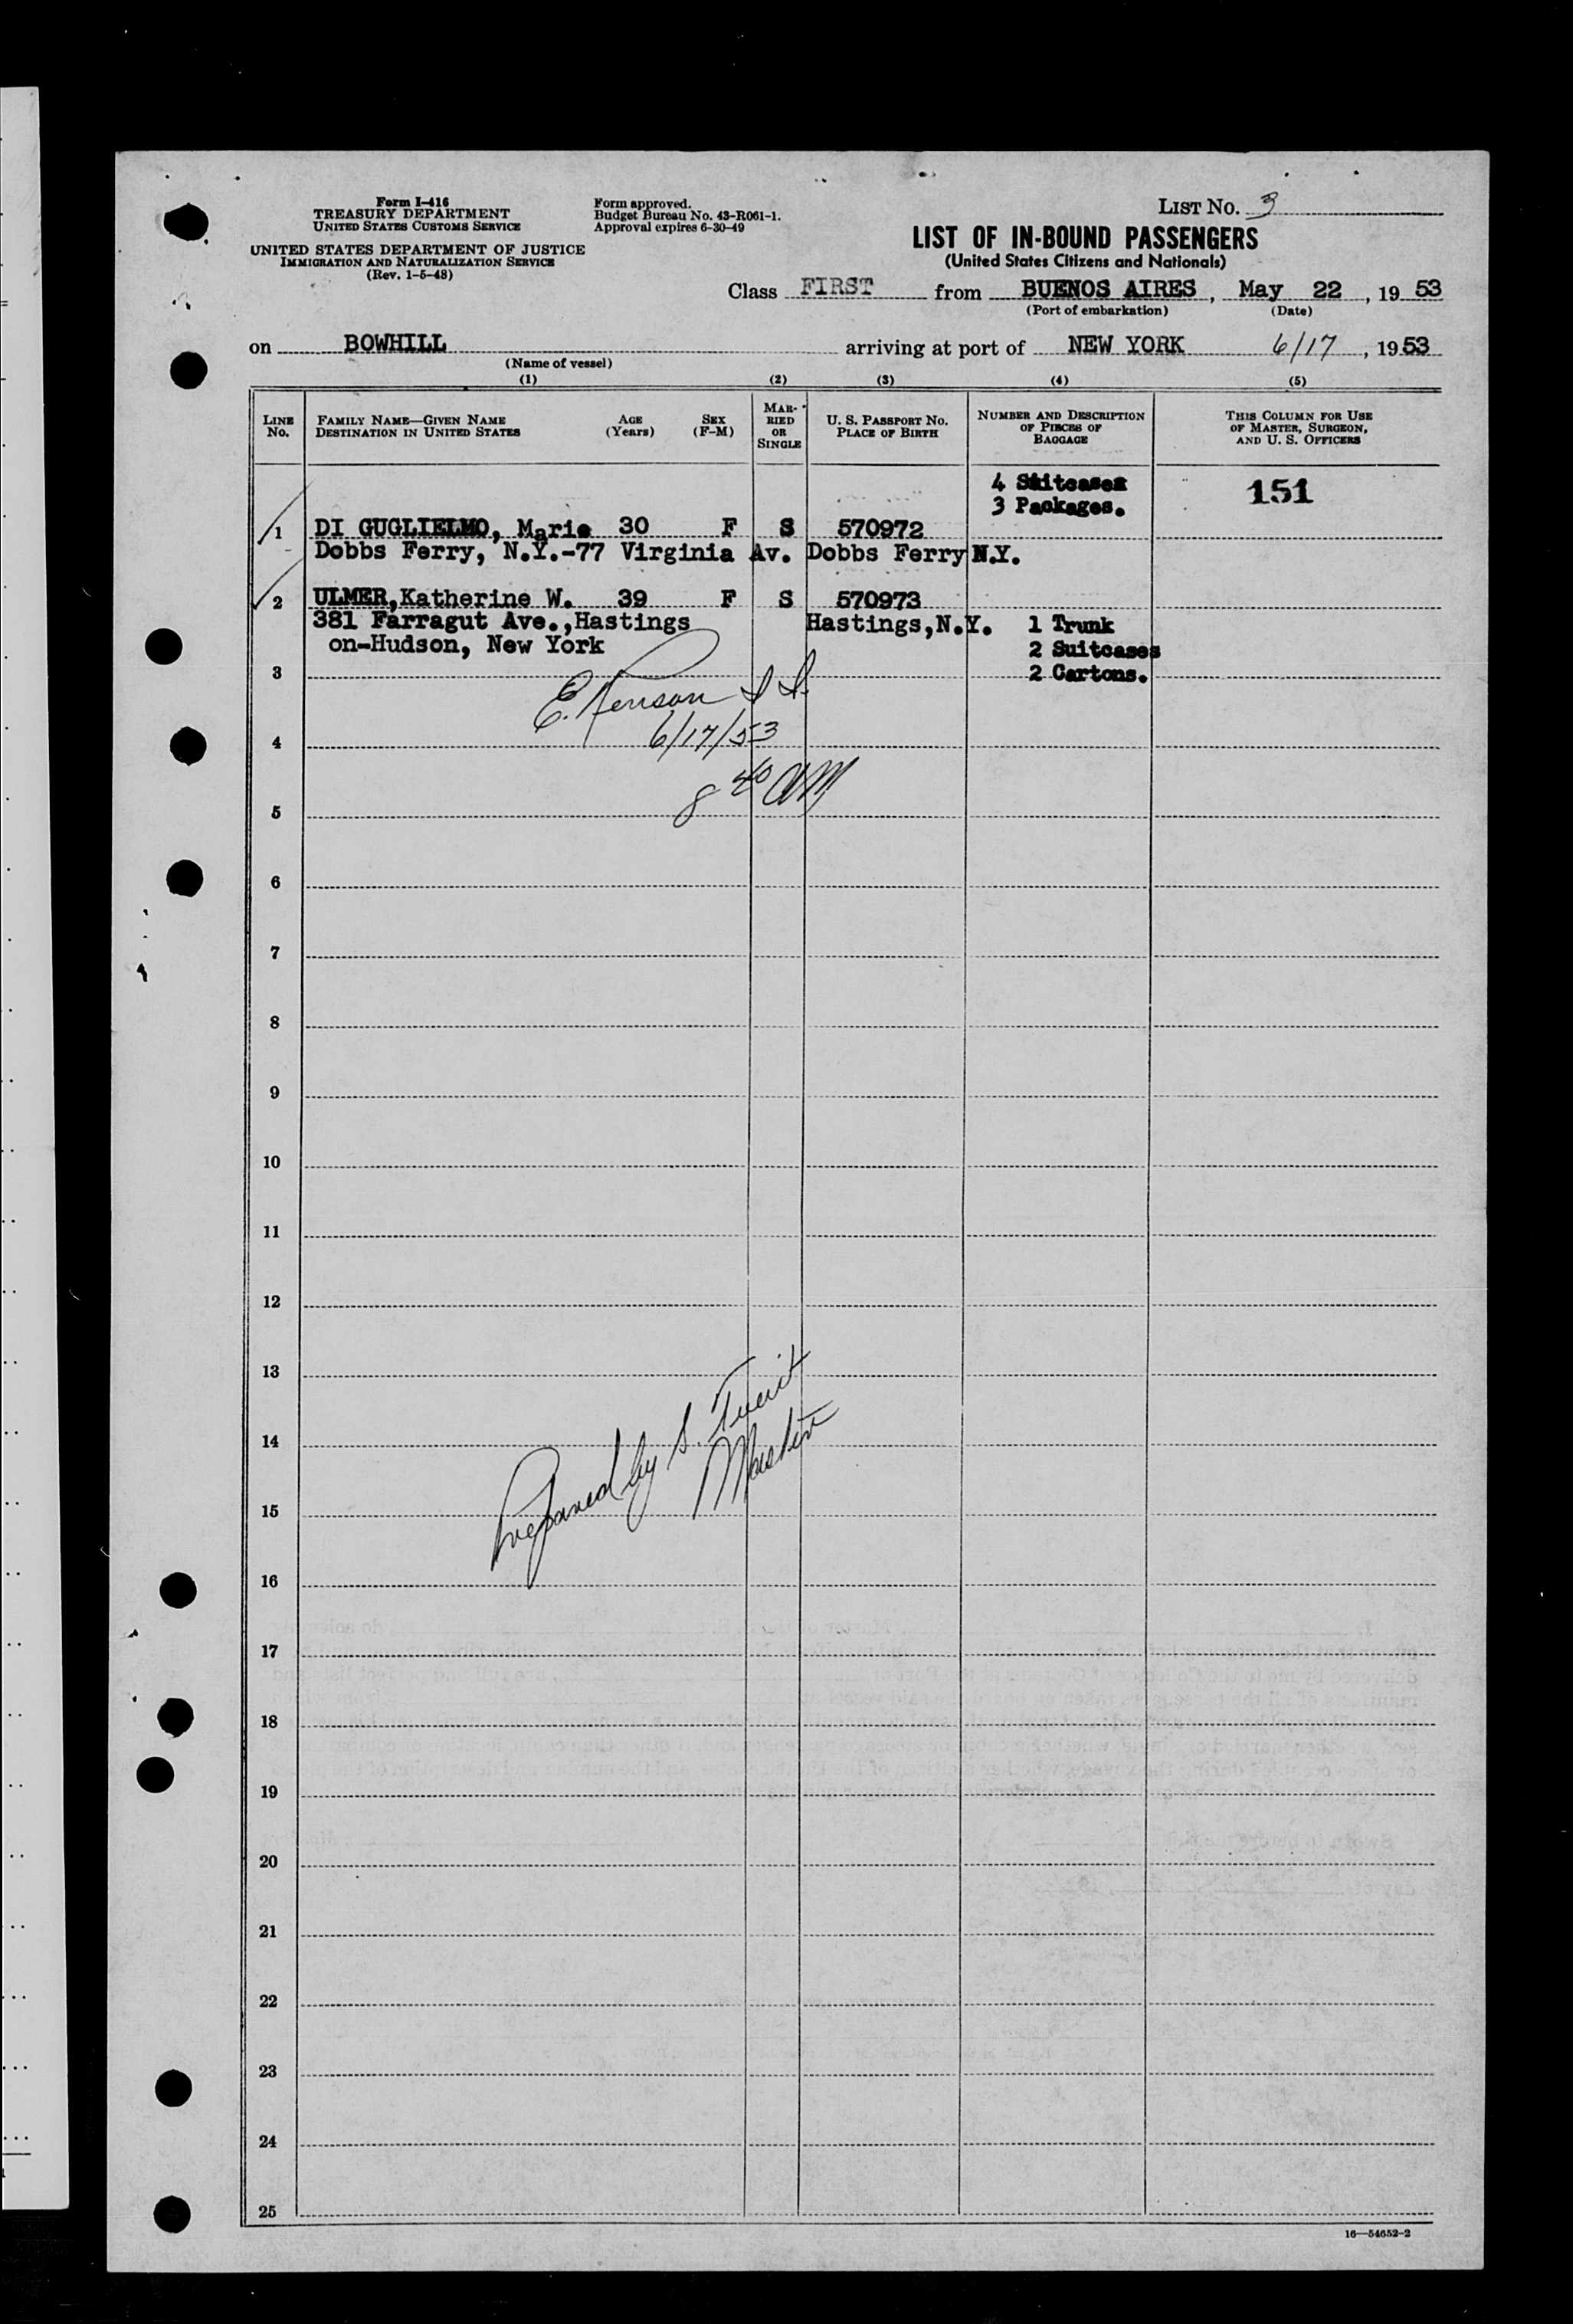 Form I-416
TREASURY DEPARTMENT
UNITED STATES CUSTOMS SERVICE
UNITED STATES DEPARTMENT OF JUSTICE
IMMIGRATION AND NATURALIZATION SERVICE
(Rev. 1-5-48)
Form approved.
Budget Bureau No. 43-R061-1.
Approval expires 6-30-49
LIST NO. 3
LIST OF IN-BOUND PASSENGERS
(United States Citizens and Nationals)
Class FIRST from BUENOS AIRES, May 22, 1953
(Port of embarkation) (Date)
on BOWHILL arriving at port of NEW YORK 6/17, 1953
(Name of vessel)
(1) (2) (3) (4) (5)
LINE No.
FAMILY NAME—GIVEN NAME
DESTINATION IN UNITED STATES
AGE (Years)
SEX (F-M)
MARRIED OR SINGLE
U. S. PASSPORT NO.
PLACE OF BIRTH
NUMBER AND DESCRIPTION OF PIECES OF BAGGAGE
THIS COLUMN FOR USE OF MASTER, SURGEON, AND U. S. OFFICERS
4 Suitcases
3 Packages.
151
1 DI GUGLIELMO, Marie 30 F S 570972
Dobbs Ferry, N.Y.-77 Virginia Av. Dobbs Ferry N.Y.
2 ULMER, Katherine W. 39 F S 570973
381 Farragut Ave., Hastings Hastings, N.Y. 1 Trunk
on-Hudson, New York 2 Suitcases
3 2 Cartons.
E.
6/17/53
4
8 40 AM
5
6
7
8
9
10
11
12
13
14
15
Prepared by S.
Master
16
17
18
19
20
21
22
23
24
25
16—54652-2